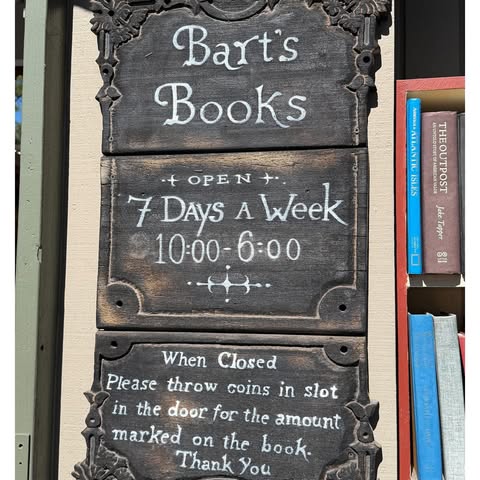 Bart's
Books
OPEN
7 Days A Week
10:00-6:00
When Closed
Please throw coins in slot
in the door for the amount
marked on the book.
Thank You
ATLANTIC ISLES
THE OUTPOST
Jake Tapper